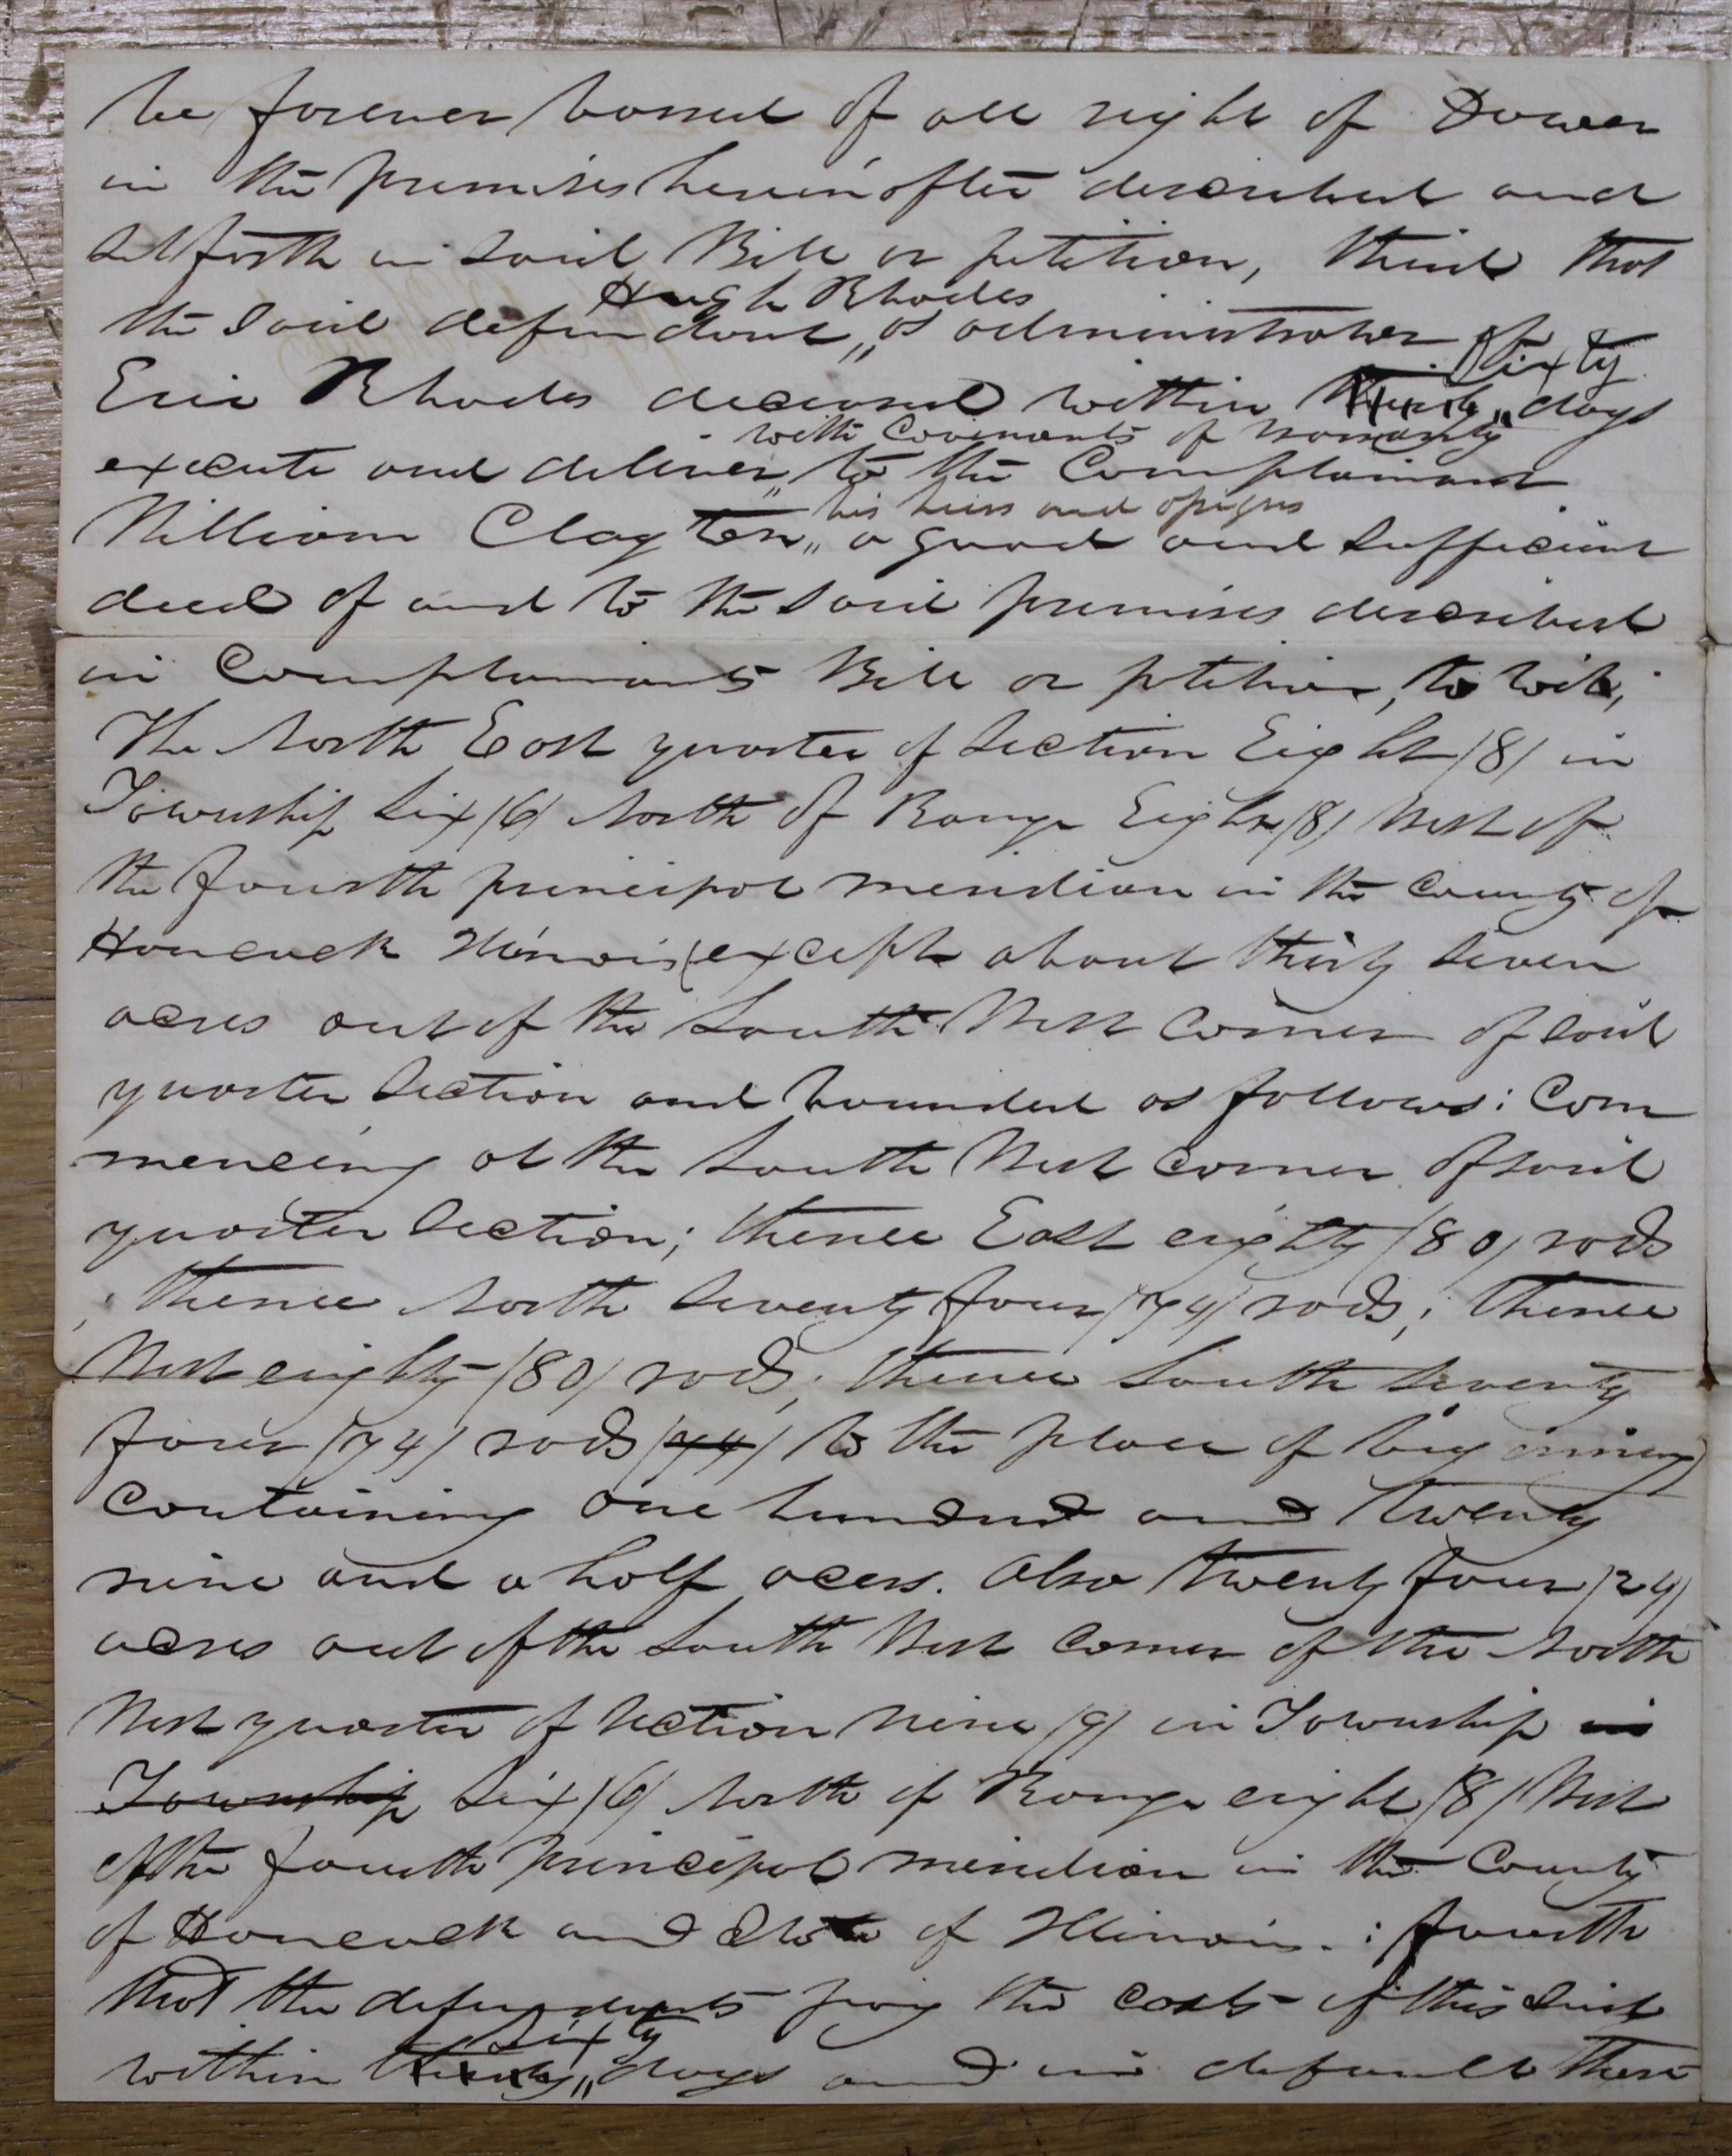 be forever barred of all right of Dower
in the premises herein after described and
set forth in said Bill or petition, third that
Hugh Rhodes
the said defendant,, as administrator of
Sixty
Eric Rhodes deceased within thirty,, days
with Covenants of warranty
execute and deliver,, to the Complainant
his heirs and assigns
William Clayton,, a good and sufficient
deed of and to the said premises described
in Complainants Bill or petition, to wit;
The North East quarter of Section Eight (8) in
Township Six (6) North of Range Eight (8) West of
the fourth principal meridian in the County of
Hancock Illinois (except about thirty seven
acres out of the South West Corner of said
quarter Section and bounded as follows: Com
mencing at the South West corner of said
quarter Section; thence East eighty (80) rods
; thence North Seventy four (74) rods; thence
West eighty (80) rods; thence South Seventy
four (74) rods (74) to the place of beginning)
Containing one hundred and twenty
nine and a half acers. Also twenty four (24)
acres out of the South West Corner of the North
West quarter of Section nine (9) in Township in
Township Six (6) North of Range eight (8) West
of the fourth principal meridian in the County
of Hancock and State of Illinois. : fourth
that the defendants pay the costs of this Suit
Sixty
within thirty,, days and in default there